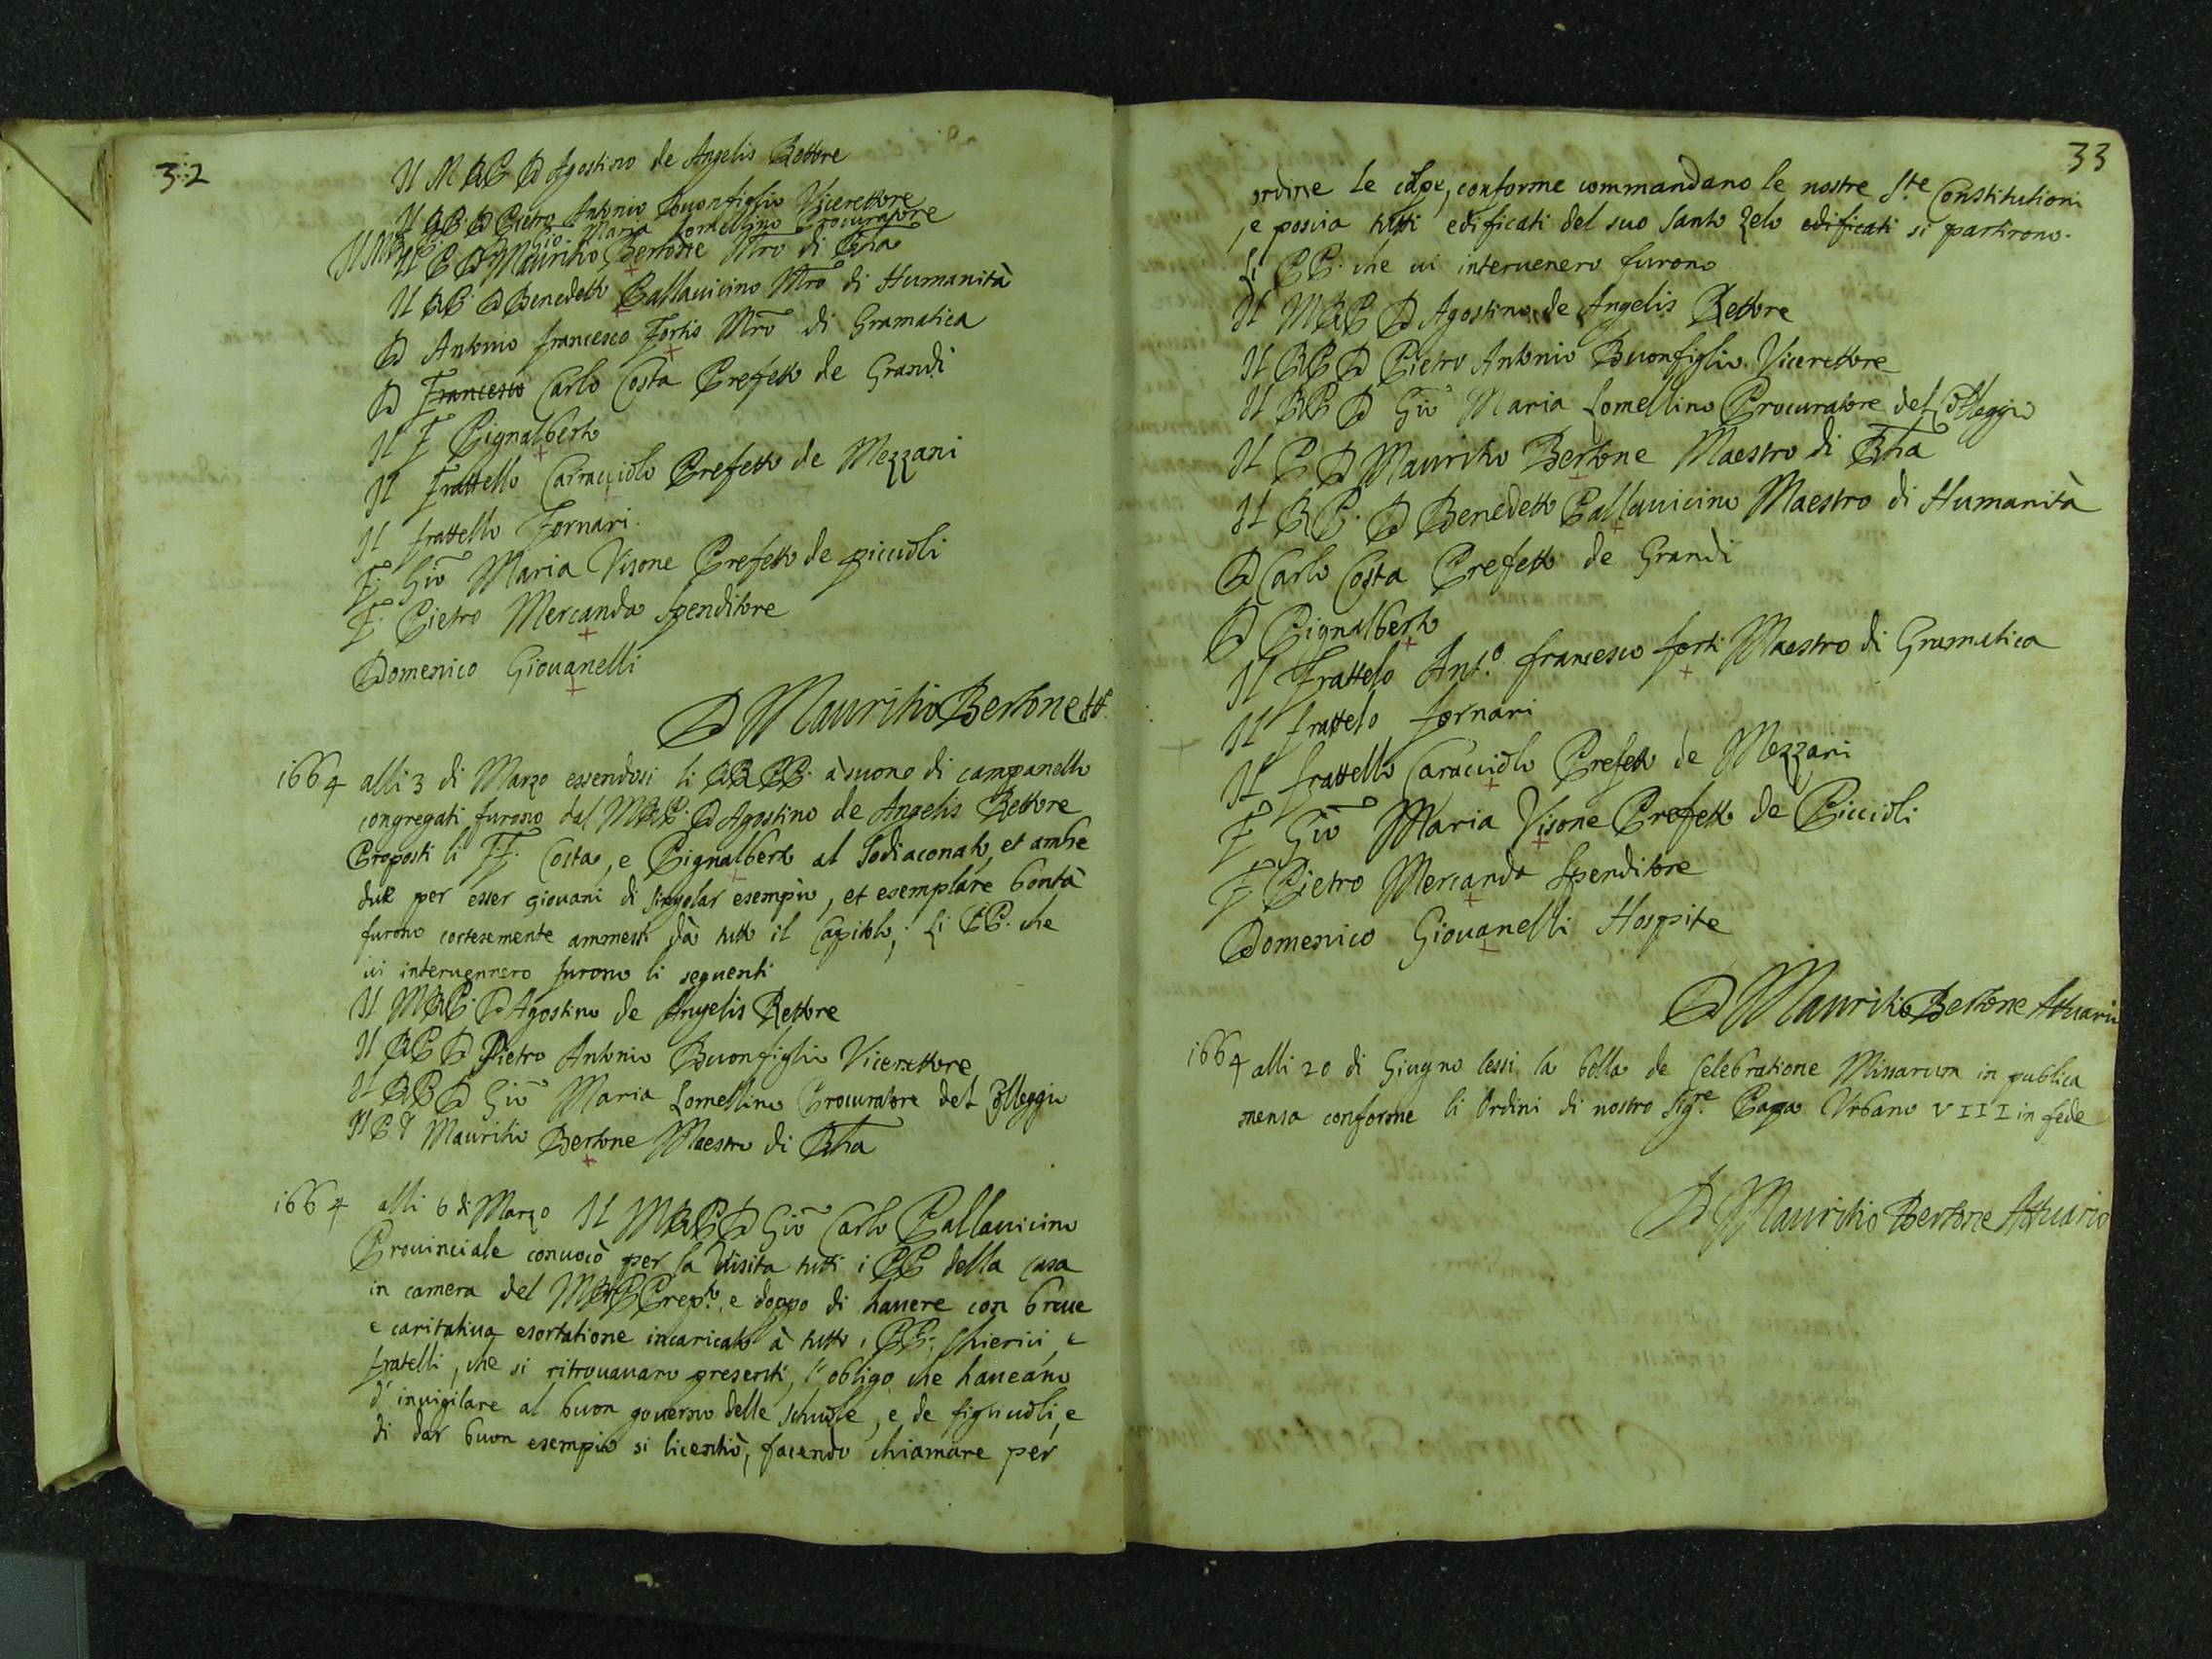 32
Il M R P D Agostino de Angelis Rettore
Il R P. D Pietro Antonio Buonfiglio Vicerettore
Il M R P D Gio Maria Lomellino Procuratore
Il P D Mauritio Bertone Mro di Rtca
Il R P. D Benedetto Pallauicino Mro di Humanità
D Antonio francesco Fortis Mro di Gramatica
D Francesco Carlo Costa Prefetto de Grandi
Il F Pignalberto
Il Frattello Carracciolo Prefetto de Mezzani
Il frattello Fornari.
F. Gio Maria Visone Prefetto de piccioli
F. Pietro Mercando Spenditore
Domenico Giouanelli
D Mauritio Bertone Att.
1664 alli 3 di Marzo essendosi li RR PP. à suono di campanello
congregati furono dal M R P. D Agostino de Angelis Rettore
Proposti li FF. Costa, e Pignalberto al Sodiaconato, et ambe
due per esser giouani di singolar esempio, et esemplare bontà
furono cortesemente ammessi dà tutto il Capitolo; Li PP. che
ui interuennero furono li seguenti
Il M R P. D Agostino de Angelis Rettore
Il R P D Pietro Antonio Buonfiglio Vicerettore
Il R P D Gio Maria Lomellino Procuratore del Colleggio
Il P D Mauritio Bertone Maestro di Rtca
1664 alli 6 di Marzo Il M R P D Gio Carlo Pallauicino
Prouinciale conuocò per la Visita tutti i PP della casa
in camera del M R P Prepto, e doppo di hauere con breue
e caritatiua esortatione incaricato à tutti i PP. Chierici, e
fratelli, che si ritrouauano presenti, l'obligo che haueano
d'inuigilare al buon gouerno delle scuole, e de figliuoli, e
di dar buon esempio si licentiò, facendo chiamare per
33
ordine le colpe, conforme commandano le nostre Ste Constitutioni
, e poscia tutti edificati del suo santo zelo edificati si partirono.
Li PP. che ui interuenero furono
Il M R P D Agostino de Angelis Rettore
Il R P D Pietro Antonio Buonfiglio Vicerettore
Il R P D Gio Maria Lomellino Procuratore del Colleggio
Il P D Mauritio Bertone Maestro di Rtca
Il R P. D Benedetto Pallauicino Maestro di Humanità
D Carlo Costa Prefetto de Grandi
D Pignalberto
Il Frattelo Ant.o francesco forti Maestro di Gramatica
Il frattelo fornari
Il frattello Caracciolo Prefetto de Mezzani
F Gio Maria Visone Prefetto de Piccioli
F. Pietro Mercando Spenditore
Domenico Giouanelli Hospite
D Mauritio Bertone Attuario
1664 alli 20 di Giugno lessi la bolla de Celebratione Missarum in publica
mensa conforme li Ordini di nostro Sig.re Papa Vrbano VIII in fede
D Mauritio Bertone Attuario